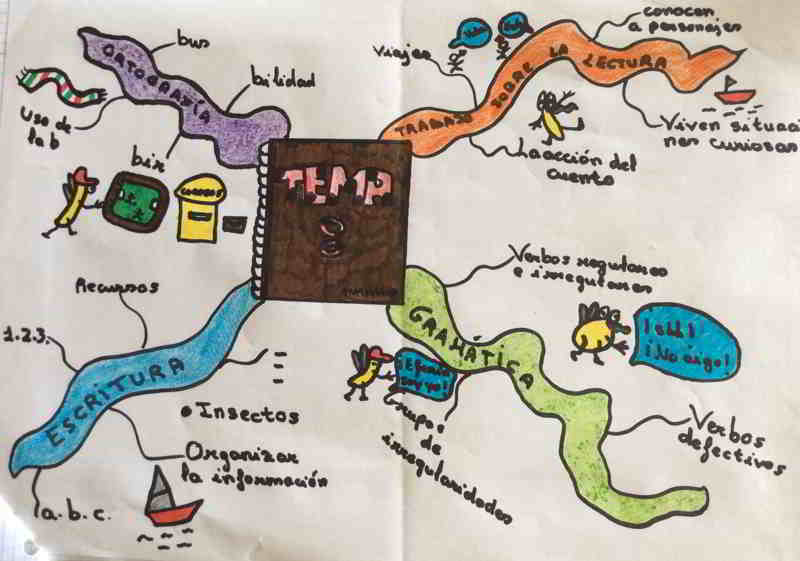 ORTOGRAFÍA
bus
bilidad
Uso de
la b
bir
CORREOS
TEMA
8
TRABAJO SOBRE LA LECTURA
Viajes
conocen
a personajes
Viven situacio
nes curiosas
La acción del
cuento
ESCRITURA
Recursos
1.2.3.
• Insectos
Organizar
la información
a.b.c.
GRAMÁTICA
Verbos regulares
e irregulares
¡ehh!
¡No oigo!
soy yo!
Grupos
de
irregularidades
Verbos
defectivos